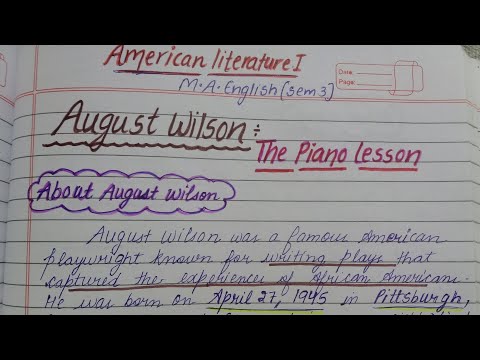 American literature I
Date:
Page:
M.A. English (Sem 3)
August Wilson :
The Piano Lesson
About August Wilson
August Wilson was a famous American
playwright known for writing plays that
captured the experiences of African Americans.
He was born on April 27, 1945 in Pittsburgh,